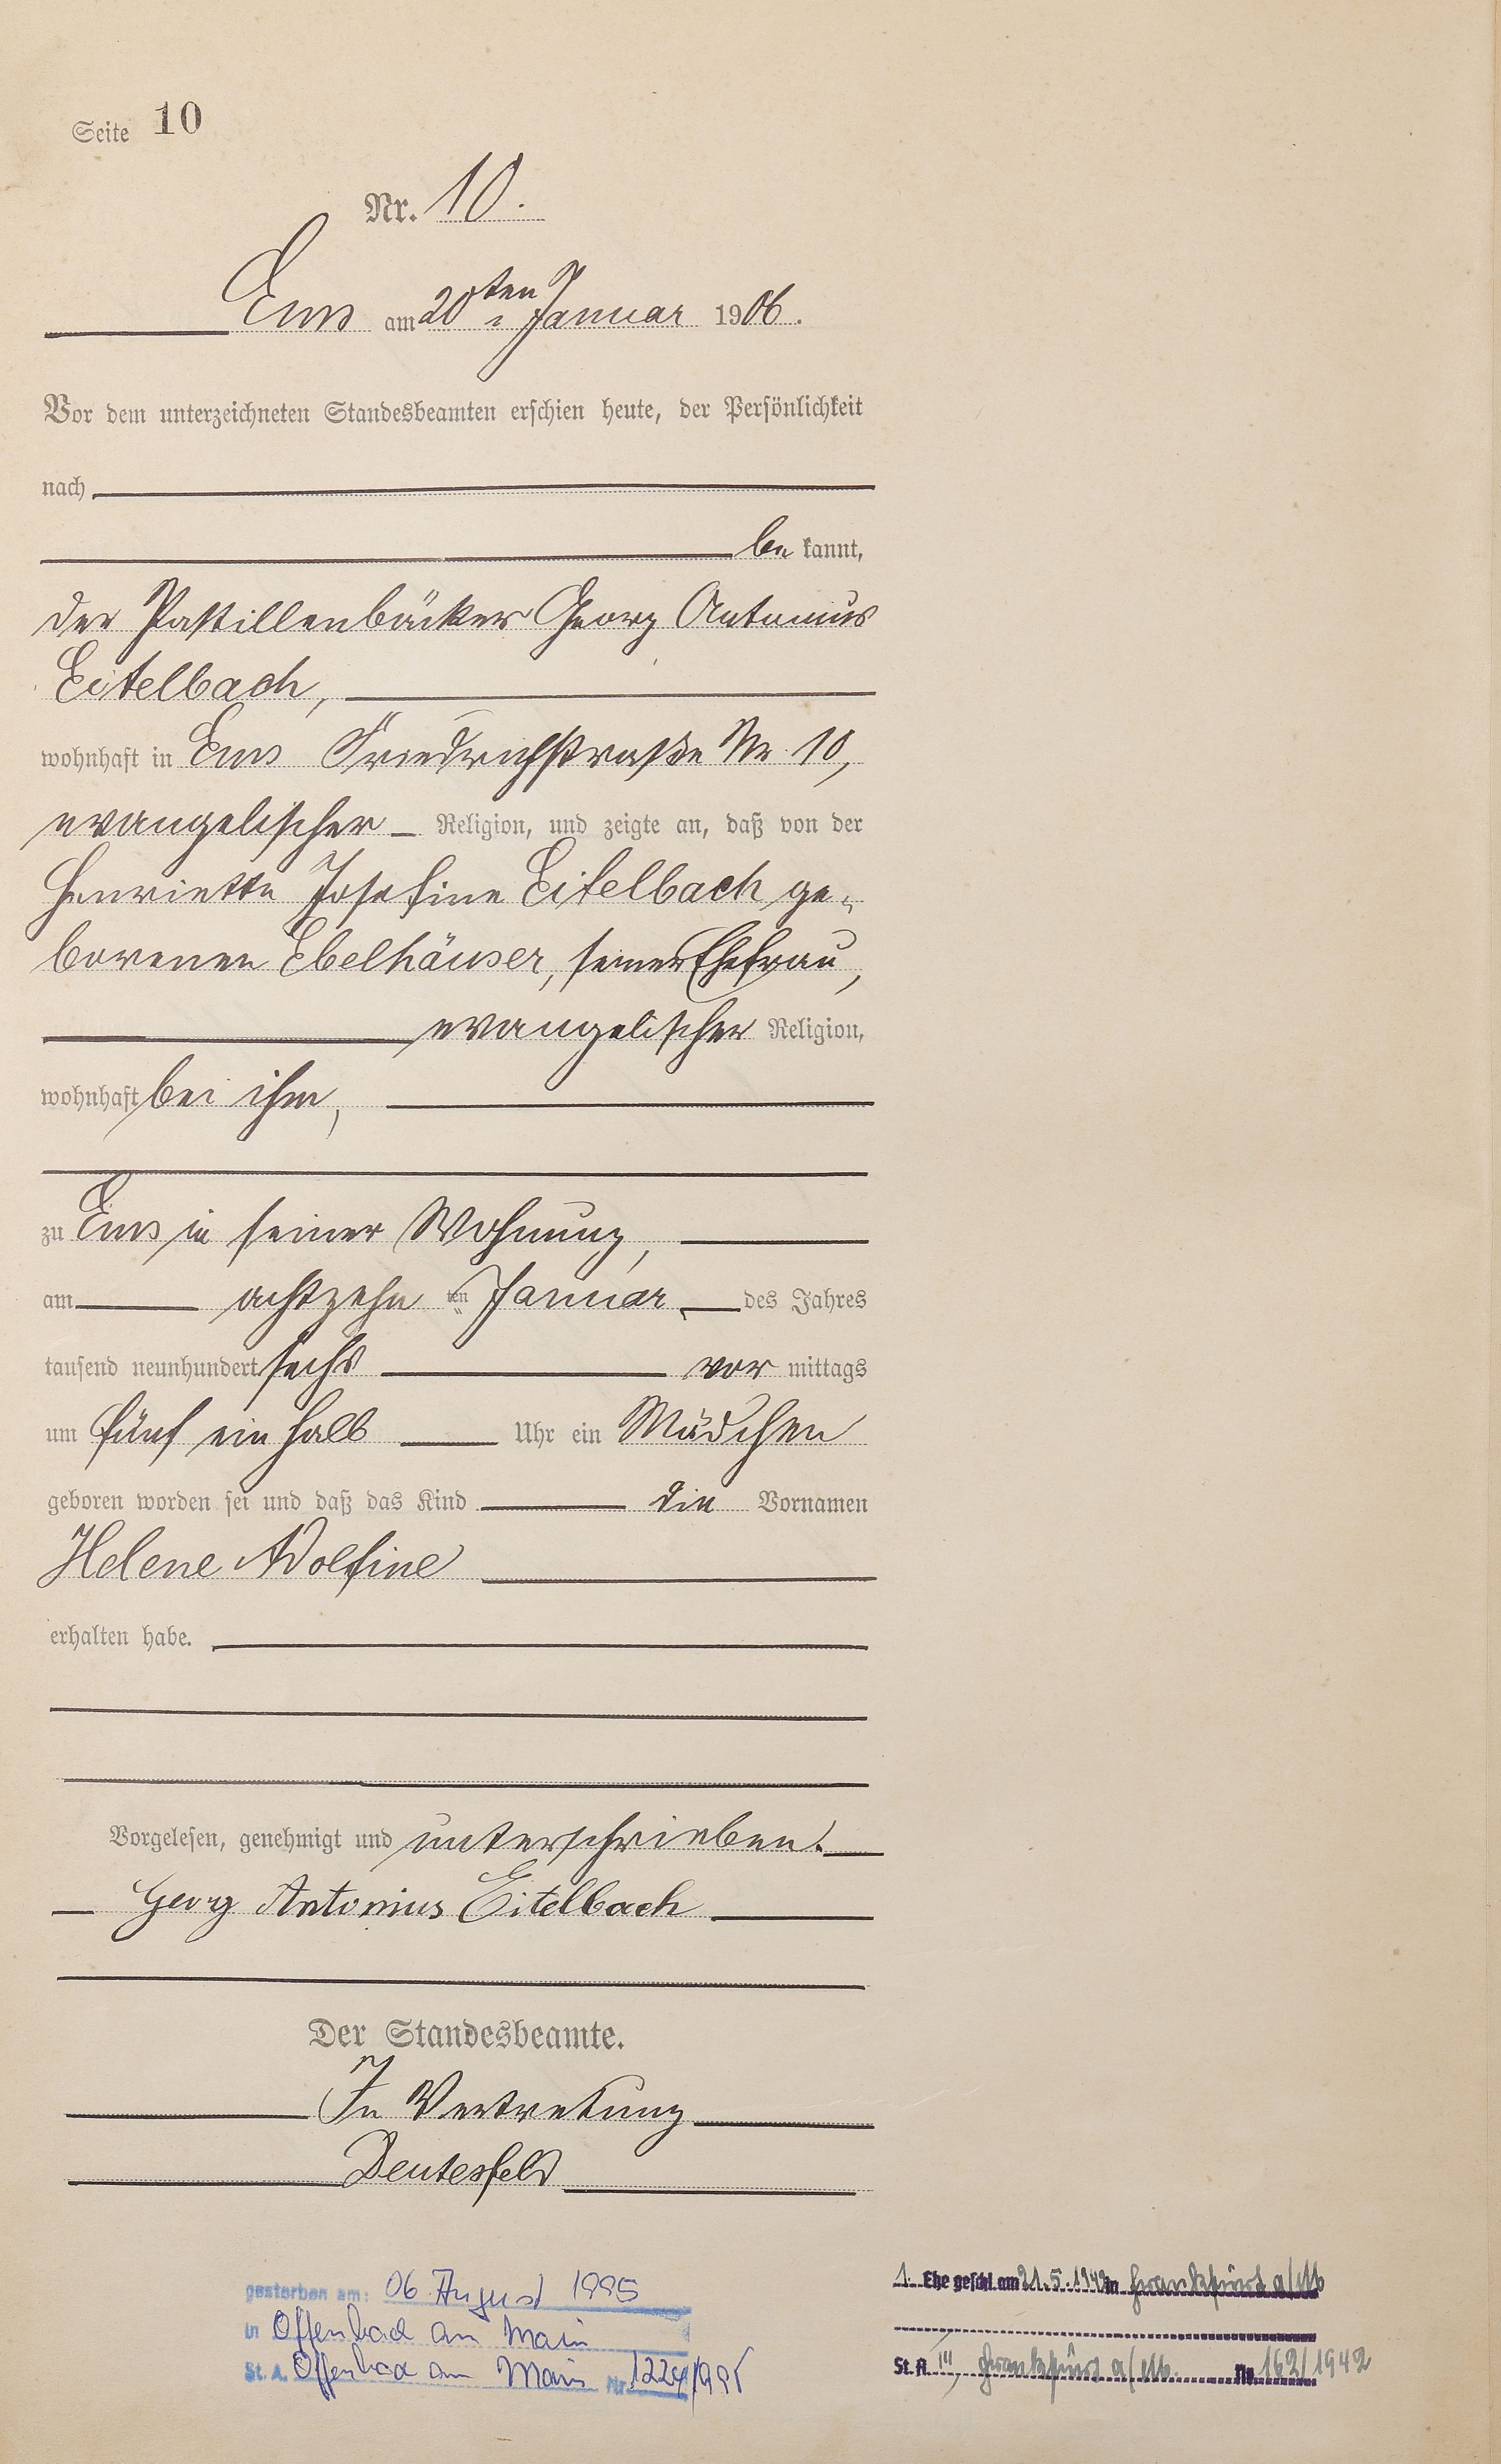 Seite 10
Nr. 10.
Ems am 20ten Januar 1906.
Vor dem unterzeichneten Standesbeamten erschien heute, der Persönlichkeit
nach
be kannt,
der Pastillenbäcker Georg Antonius
Eitelbach,
wohnhaft in Ems Friedrichstraße Nr. 10,
evangelischer Religion, und zeigte an, daß von der
Henriette Josefine Eitelbach ge-
borenen Ebelhäuser, seiner Ehefrau,
evangelischer Religion,
wohnhaft bei ihm,
zu Ems in seiner Wohnung,
am achtzehn ten Januar des Jahres
tausend neunhundert sechs vor mittags
um fünf ein halb Uhr ein Mädchen
geboren worden sei und daß das Kind die Vornamen
Helene Adolfine
erhalten habe.
Vorgelesen, genehmigt und unterschrieben.
Georg Antonius Eitelbach
Der Standesbeamte.
In Vertretung
Deutesfeld
gestorben am: 06. August 1995
in Offenbach am Main
St. A. Offenbach am Main Nr. 1224/1995
1. Ehe geschl. am 21.5.1942 in Frankfurt a/M
St. A. III, Frankfurt a/M. No 162/1942